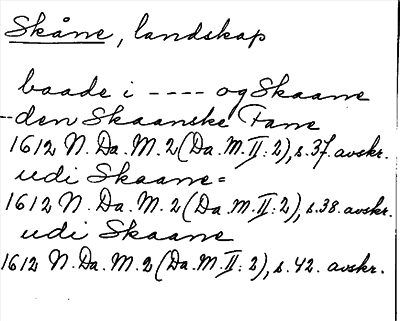 Skåne, landskap
baade i ---- og Skaane
--den Skaanske Fane
1612 N. Da. M. 2 (Da. M. II: 2), s. 37. avskr.
udi Skaane=
1612 N. Da. M. 2 (Da. M. II: 2), s. 38. avskr.
udi Skaane
1612 N. Da. M. 2 (Da. M. II: 2), s. 42. avskr.